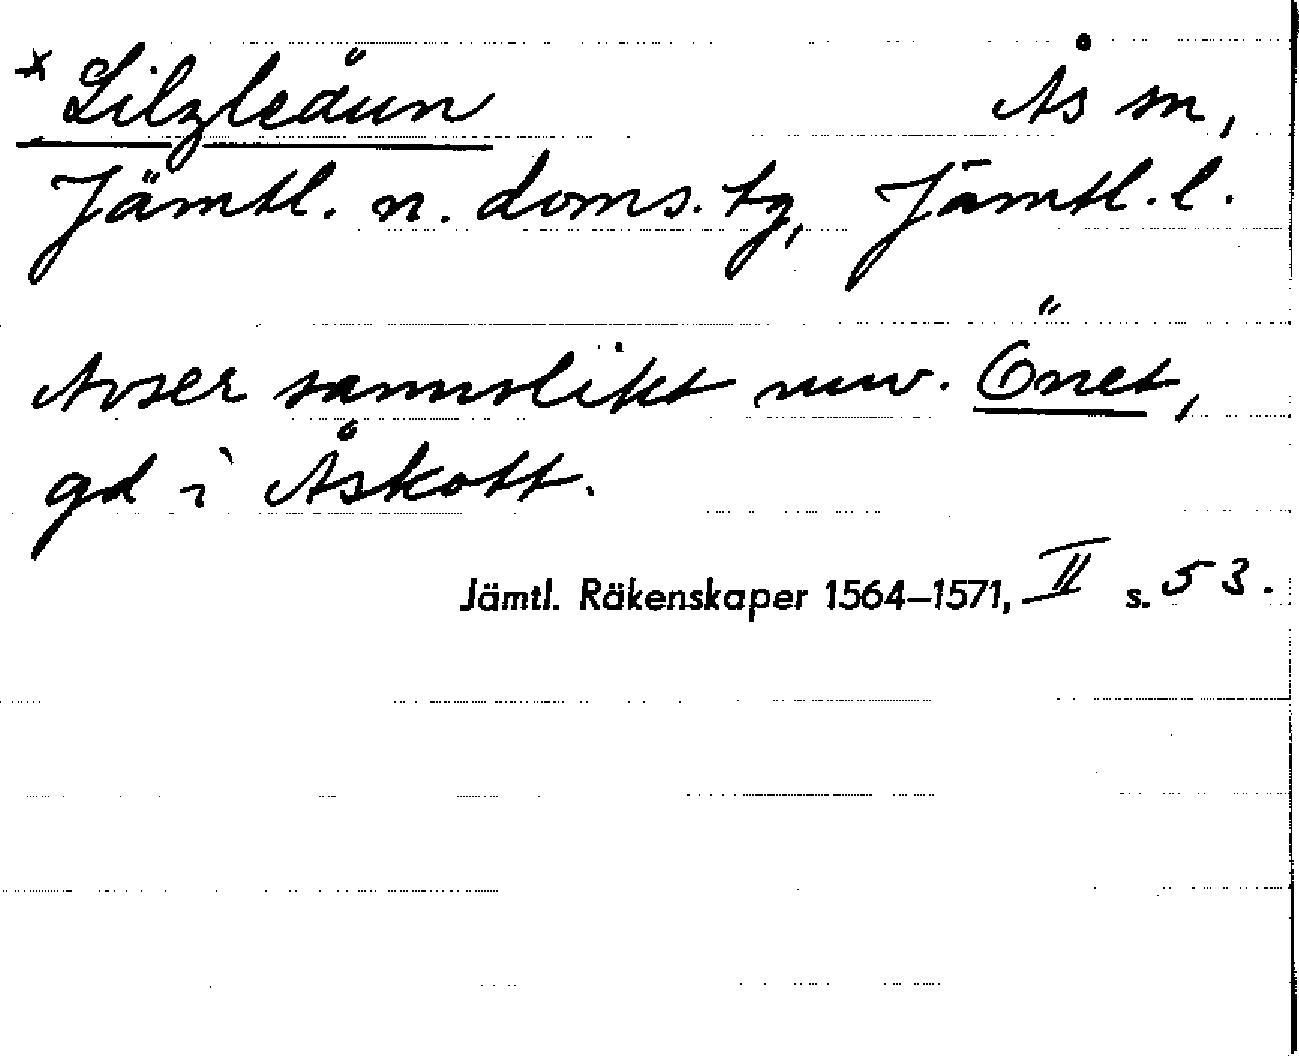 x Lilzleåun Ås sn,
Jämtl. n. doms. tg, Jämtl. l.
Avser sannolikt nuv. Önet,
gd i Åskott.
Jämtl. Räkenskaper 1564–1571, II s. 53.